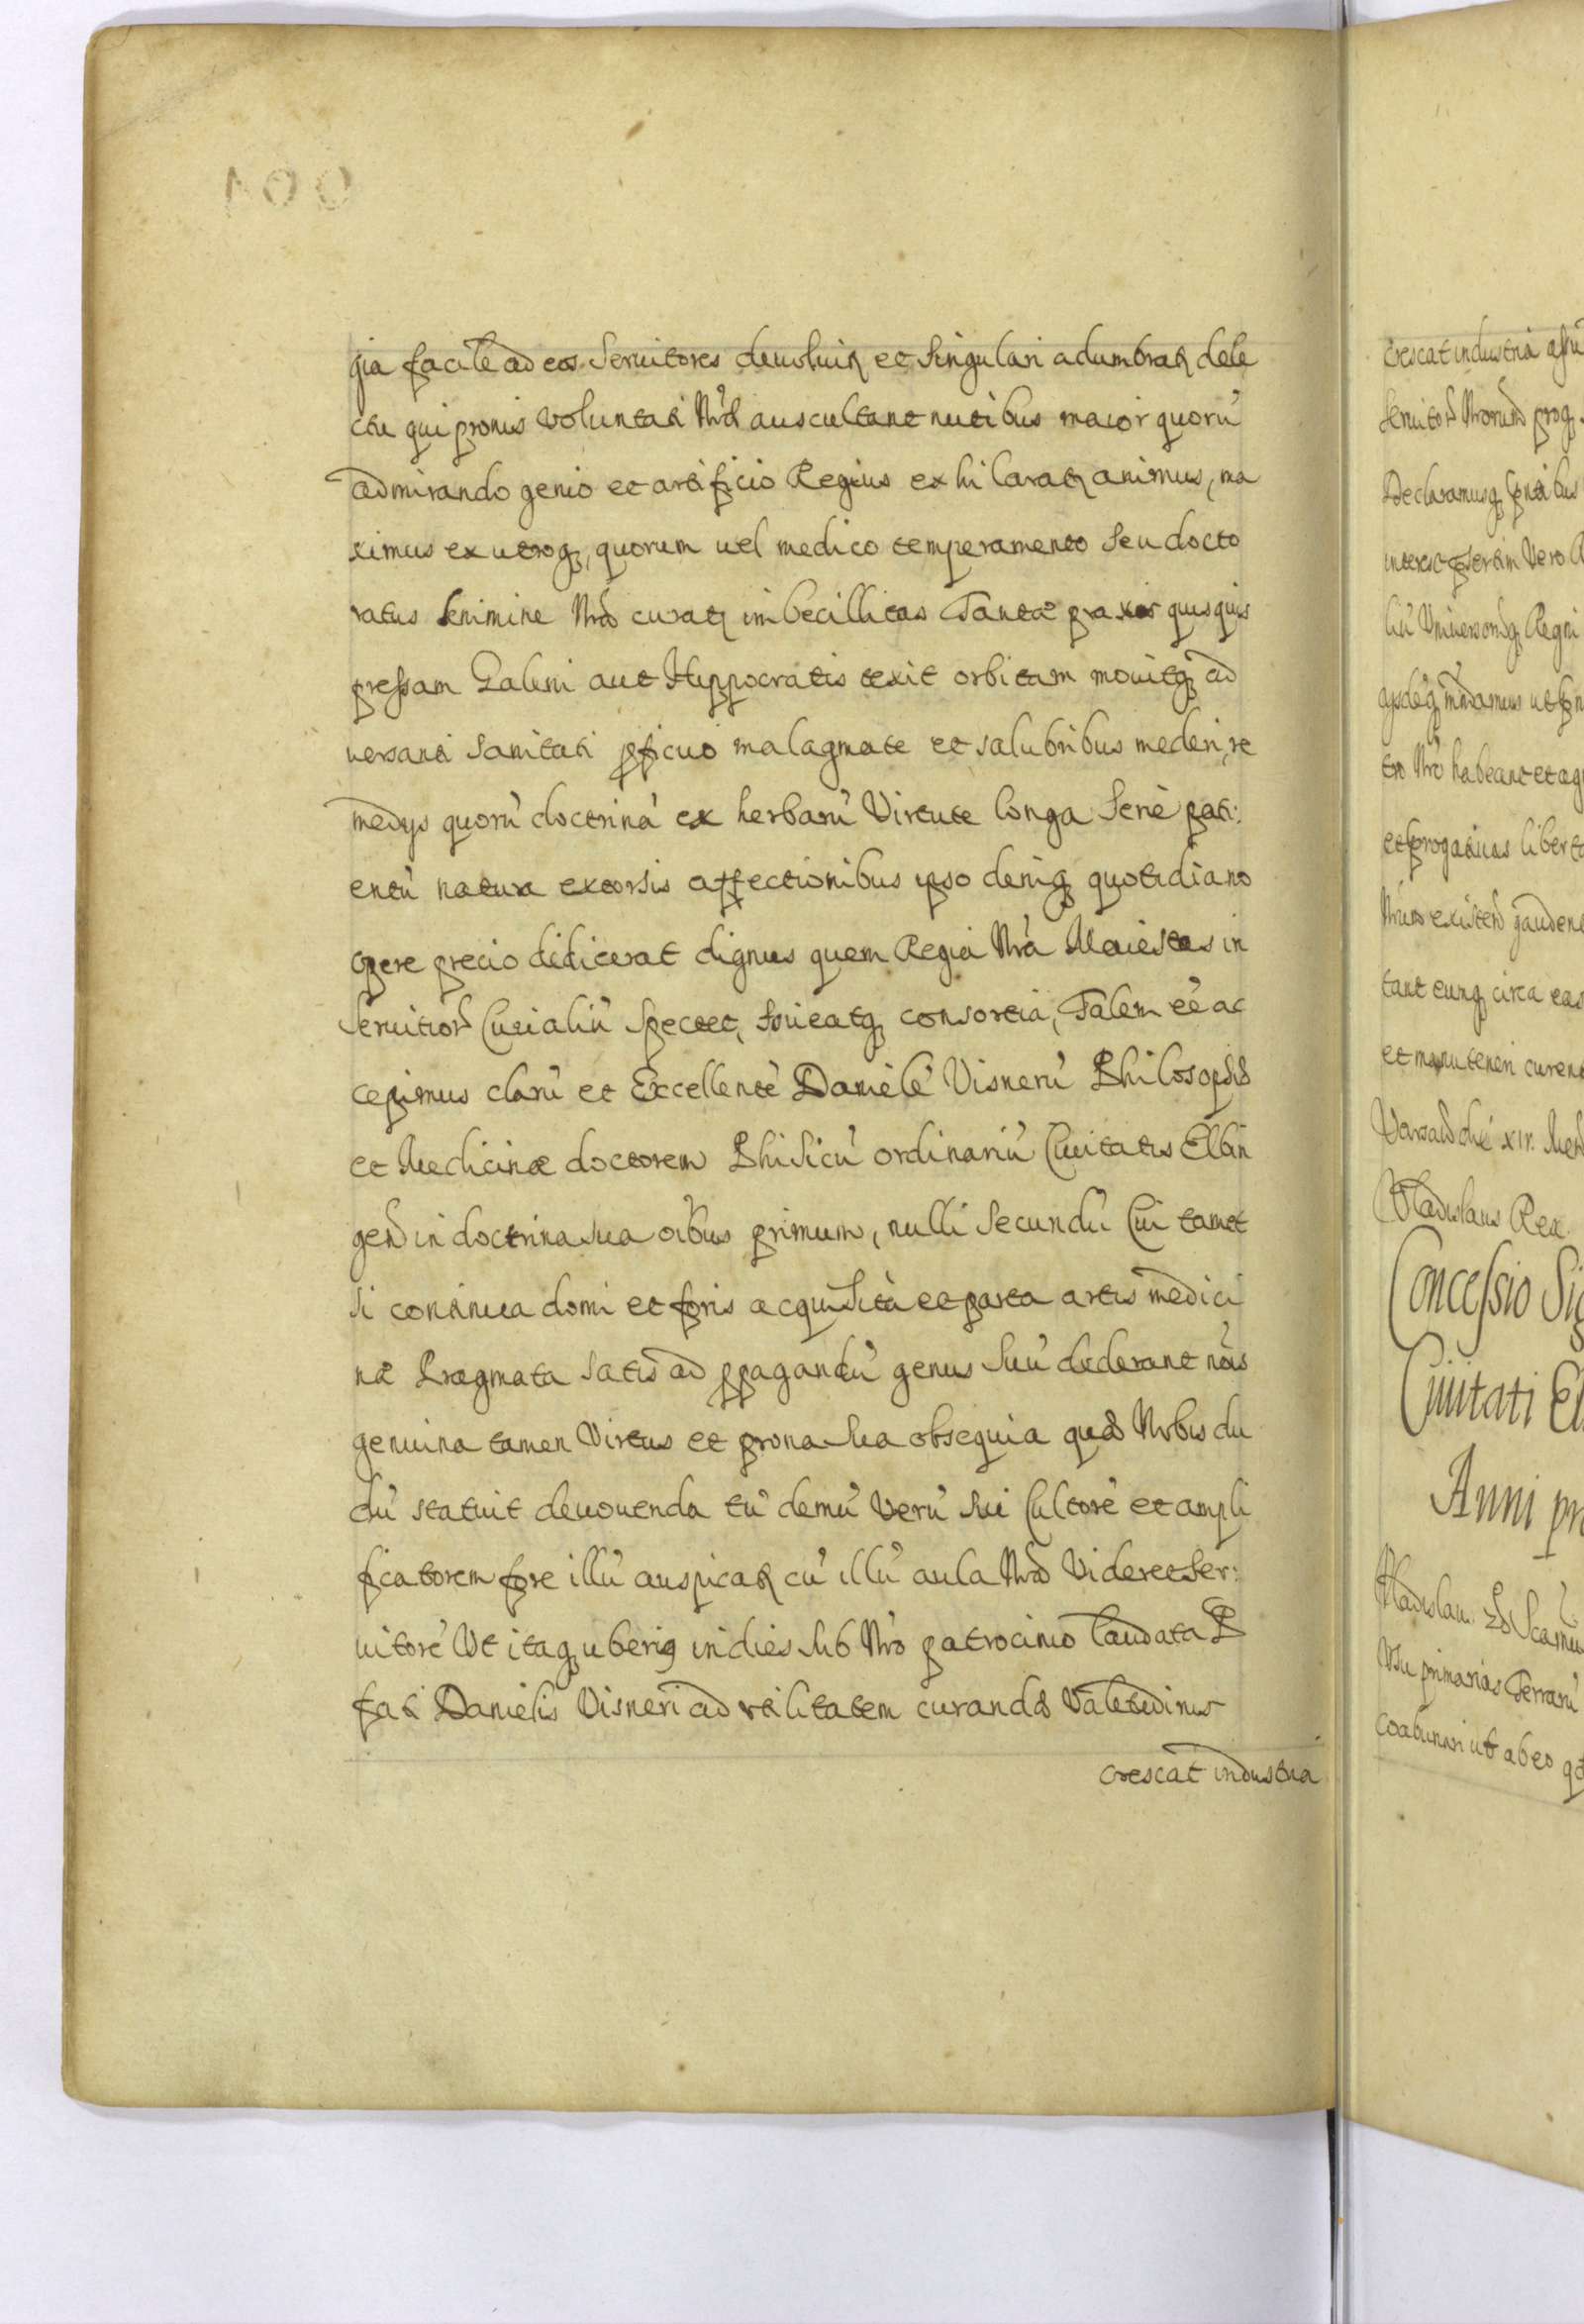 gia facile ad eos Seruitores deuoluit et singulari adumbrat dele
ctu qui pronis voluntati Nrae auscultant nutibus maior quorú
admirando genio et artificio Regius exhilaratq animus, ma
ximus ex utroq, quorum uel medico temperamento seu docto
ratus lenimine Nra curatq imbecillitas Tantae praxis quisquis
pressam Galeni aut Hyppocratis texit orbitam mouitq ad
uersanti sanitati pficuo malagmate et salubribus mederi, re
medys quorú doctriná ex herbarú Virtute longa serie pati:
entú natura extorsis affectionibus ipso deniq quotidiano
opere precio didicerat dignus quem Regia Nra Maiestas in
Seruitior Curialiú spectet, foueatq consortia, Talem eé ac
cepimus clarú et Excellenté Danielé Visnerú Philosophiae
et Medicinae doctorem Phisicú ordinariú Ciuitatis Elbin
gen in doctrina sua oibus primum, nulli secundú Cui tamet
si continua domi et foris acquisita et parta artis medici
nae Pragmata satis ad ppagandú genus suú dederant nois
genuina tamen Virtus et prona sua obsequia quae Nobis du
dú statuit deuouenda tú demú verú sui Cultoré et ampli
ficatorem fore illú auspicat cú illú aula Nra Videret Ser:
uitoré Ut itaq uberiq indies sub Nro patrocinio laudata P
fati Danielis Visneri ad vtilitatem curandae Valetudinis
crescat industria
crescat industria
Seruitor Nrorum prog
Declaramusq
interest psertim Vero
liú Vniversorq Regni
ysdéq mandamus ut
tro Nro habeant et
et progatiuas
Nrum existen gaudent
tant eunq circa eas
et manuteneri curent
Varsae dié XIV. Mens
Vladislaus Rex
Concessio Sig
Ciuitati El
Anni pr
Vladislaus
Vsu primarias Terrarú
coabunari ut ab eo